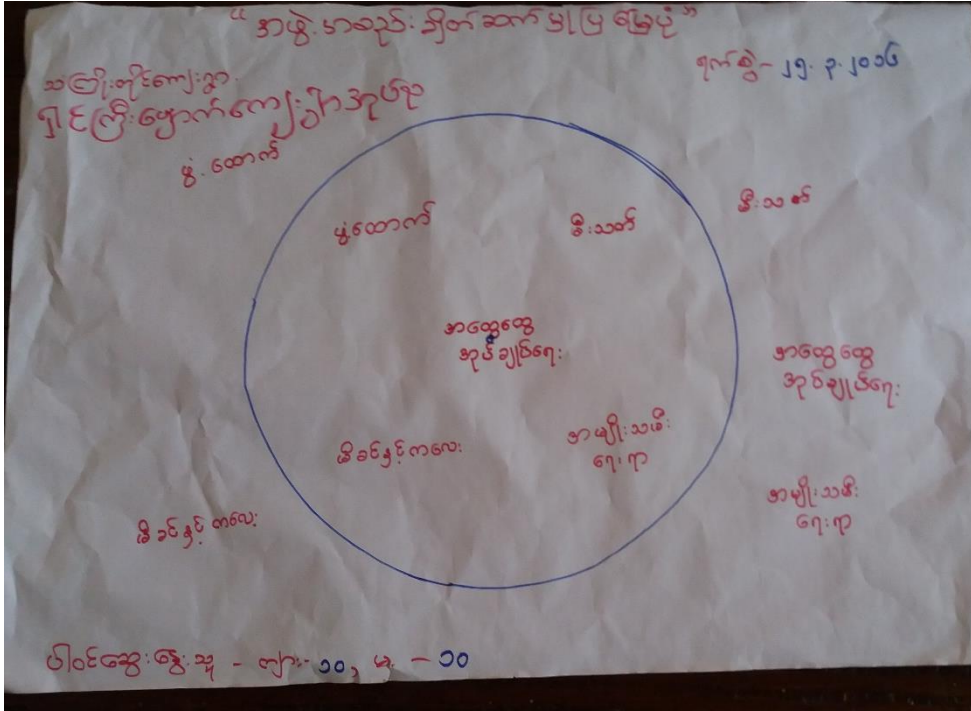 "အဖွဲ့အစည်းချိတ်ဆက်မှုပြမြေပုံ"
ရက်စွဲ - ၂၅.၃.၂၀၁၆
သင်္ကြိုးတိုင်ကျေးရွာ
ရှင်ကြီးဖျောက်ကျေးရွာအုပ်စု
ဖွံ့ထောက်
ဖွံ့ထောက်
မီးသတ်
မီးသတ်
အထွေထွေ
အုပ်ချုပ်ရေး
အထွေထွေ
အုပ်ချုပ်ရေး
မိခင်နှင့်ကလေး
အမျိုးသမီး
ရေးရာ
အမျိုးသမီး
ရေးရာ
မိခင်နှင့်ကလေး
ပါဝင်ဆွေးနွေးသူ - ကျား - ၁၀, မ - ၁၀